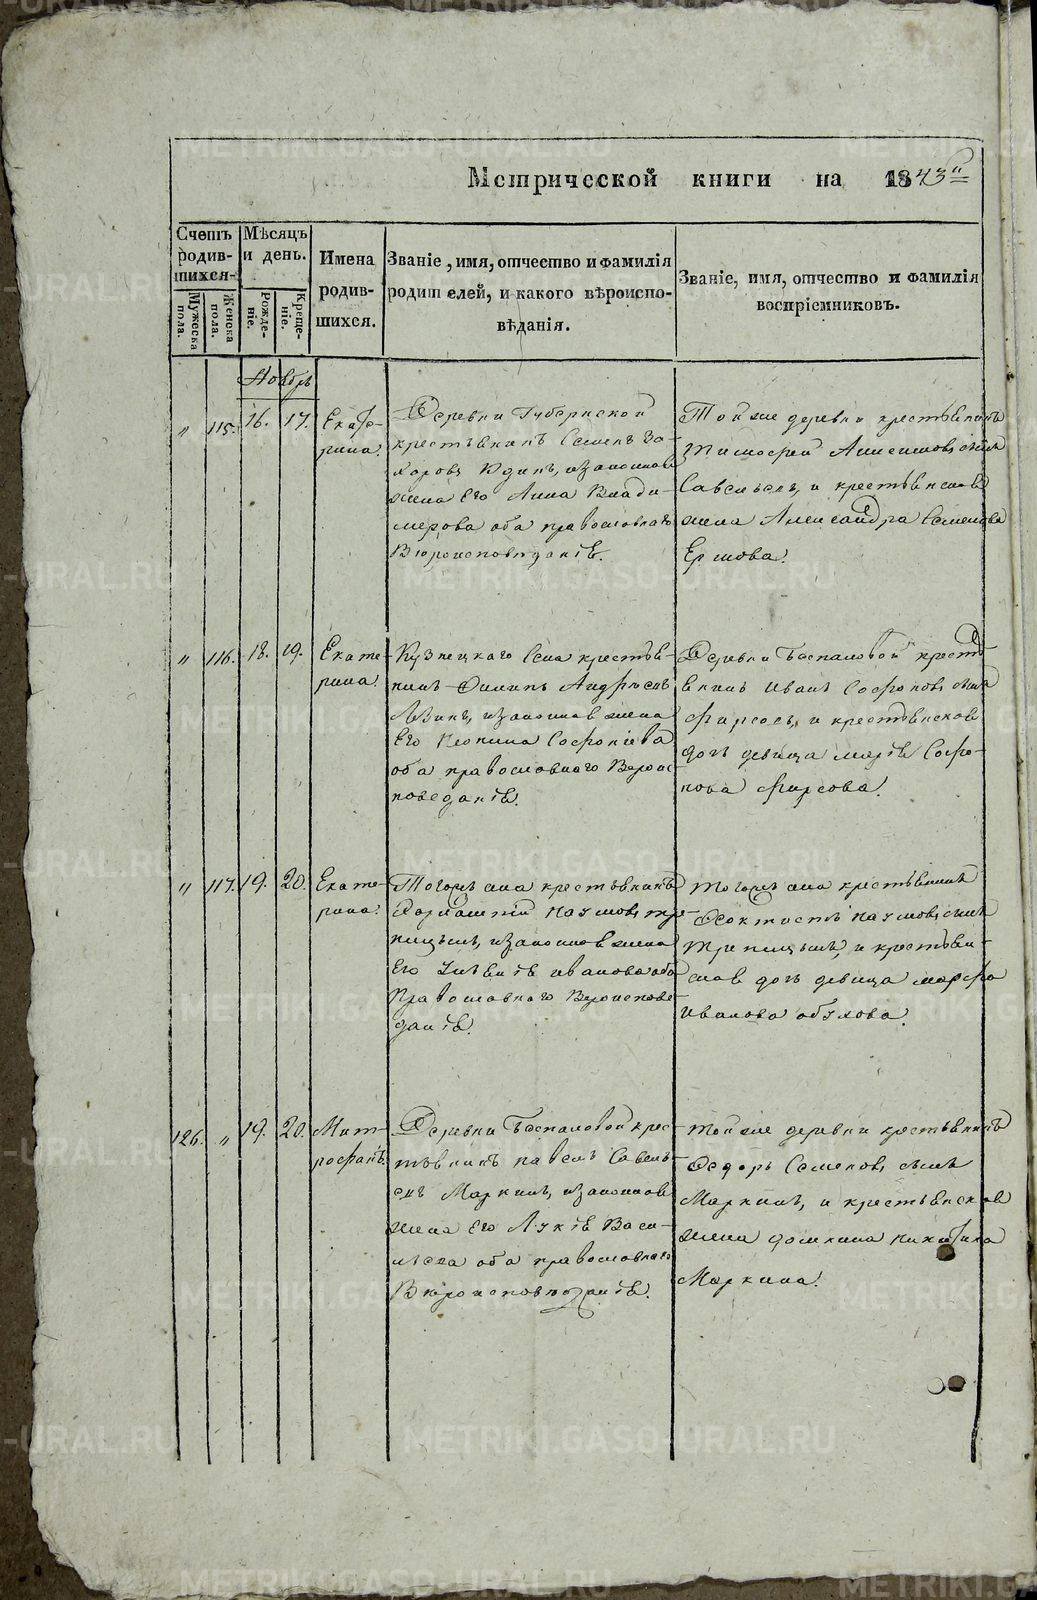 Метрической книги на 1843
Счетъ родив-шихся.
Мѣсяцъ и день.
Имена родив-шихся.
Званіе, имя, отчество и фамилія
родителей, и какого вѣроиспо-
вѣданія.
Званіе, имя, отчество и фамилія
воспріемниковъ.
Мужеска пола.
Женска пола.
Рожде-ніе.
Креще-ніе.
Ноябрь
" 115. 16. 17. Екате-
рина.
Деревни Губернской
крестьянинъ Семенъ За-
харовъ Юдинъ, и законная
жена Его Анна Влади-
мерова оба православнаго
Вѣроисповѣданія.
Той же деревни крестьянинъ
Тимофей Анисимовъ сынъ
Савельевъ, и крестьянская
жена Александра Семенова
Ершова.
" 116. 18. 19. Екате-
рина.
Кузнецкаго Села крестья-
нинъ Филипъ Андреевъ
и законная жена
Его Софоніева
оба православнаго Вероис-
поведанія.
Деревни Беспаловой кресть-
янинъ Иванъ Софоновъ сынъ
Фирсовъ, и крестьянская
дочь девица Марія Софо-
нова Фирсова.
" 117. 19. 20. Екате-
рина.
Тогожъ села крестьянинъ
Наумовъ
и законная жена
Его Иванова оба
Православнаго Вероиспове-
данія.
Тогожъ села крестьянинъ
Наумовъ сынъ
и крестьян-
ская дочь девица Марфа
Иванова Обухова.
126. " 19. 20. Мит-
рофанъ.
Деревни Беспаловой крес-
тьянинъ Павелъ Савель-
евъ Маркинъ, и законная
жена Его Лукія Васи-
льева оба православнаго
Вѣроисповѣданія.
Той же деревни крестьянинъ
Федоръ Семеновъ сынъ
Маркинъ, и крестьянская
жена Домнина Никитина
Маркина.
METRIKI.GASO-URAL.RU